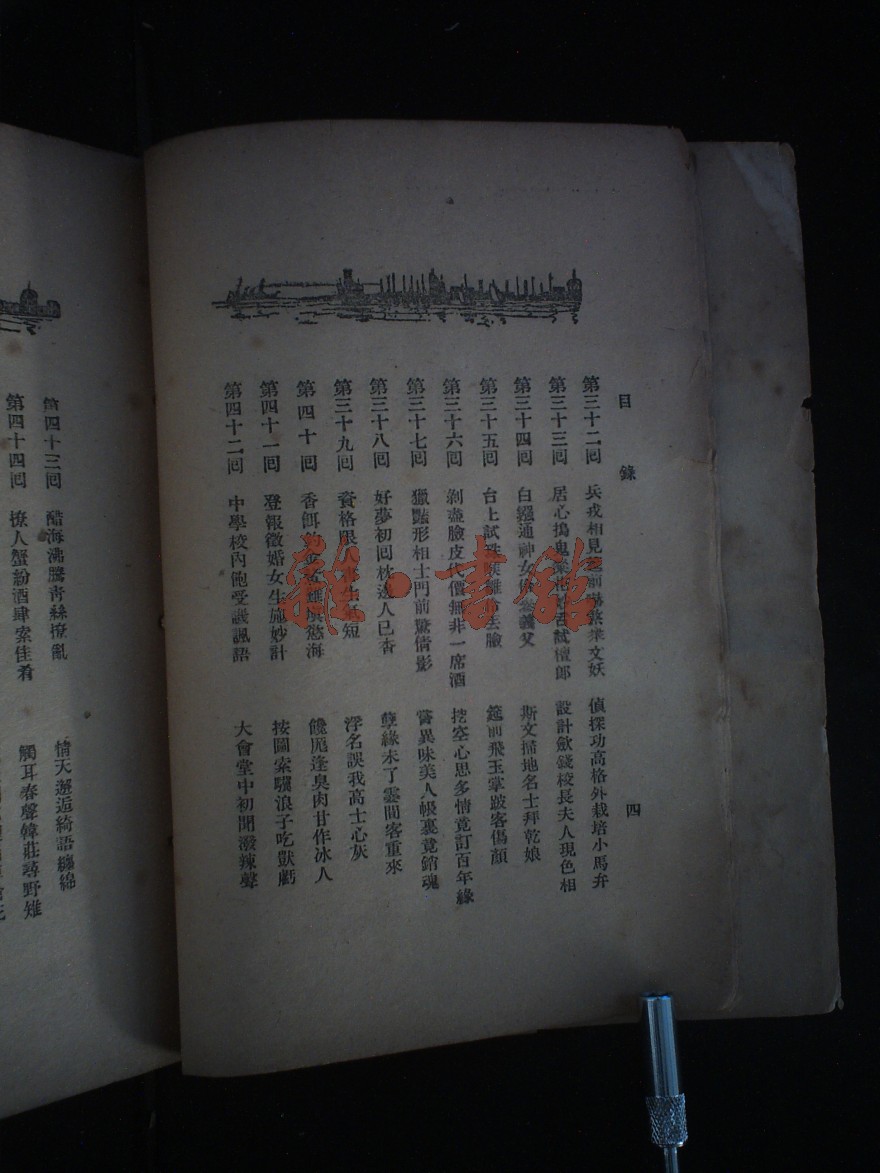 目錄
四
第三十二回 兵戎相見 前 文妖 偵探功高格外栽培小馬弁
第三十三回 居心搗鬼 試檀郎 設計斂錢校長夫人現色相
第三十四回 白鏹通神女 義父 斯文掃地名士拜乾娘
第三十五回 台上試 臉 筵前飛玉掌跛客傷顏
第三十六回 剃 臉皮代價無非一席酒 挖空心思多情竟訂百年緣
第三十七回 獵豔形相士門前驚倩影 嘗異味美人帳裏竟銷魂
第三十八回 好夢初回枕邊人已杳 孽緣未了雲間客重來
第三十九回 資格限人 短 浮名誤我高士心灰
第四十回 香餌 慾海 饞厖逢臭肉甘作冰人
第四十一回 登報徵婚女生施妙計 按圖索驥浪子吃獃虧
第四十二回 中學校內飽受譏諷語 大會堂中初聞潑辣聲
第四十三回 醋海沸騰青絲撩亂 情天邂逅綺語纏綿
第四十四回 撩人蟹紛酒肆索佳肴 觸耳春聲韓莊尋野雉
雜·書館